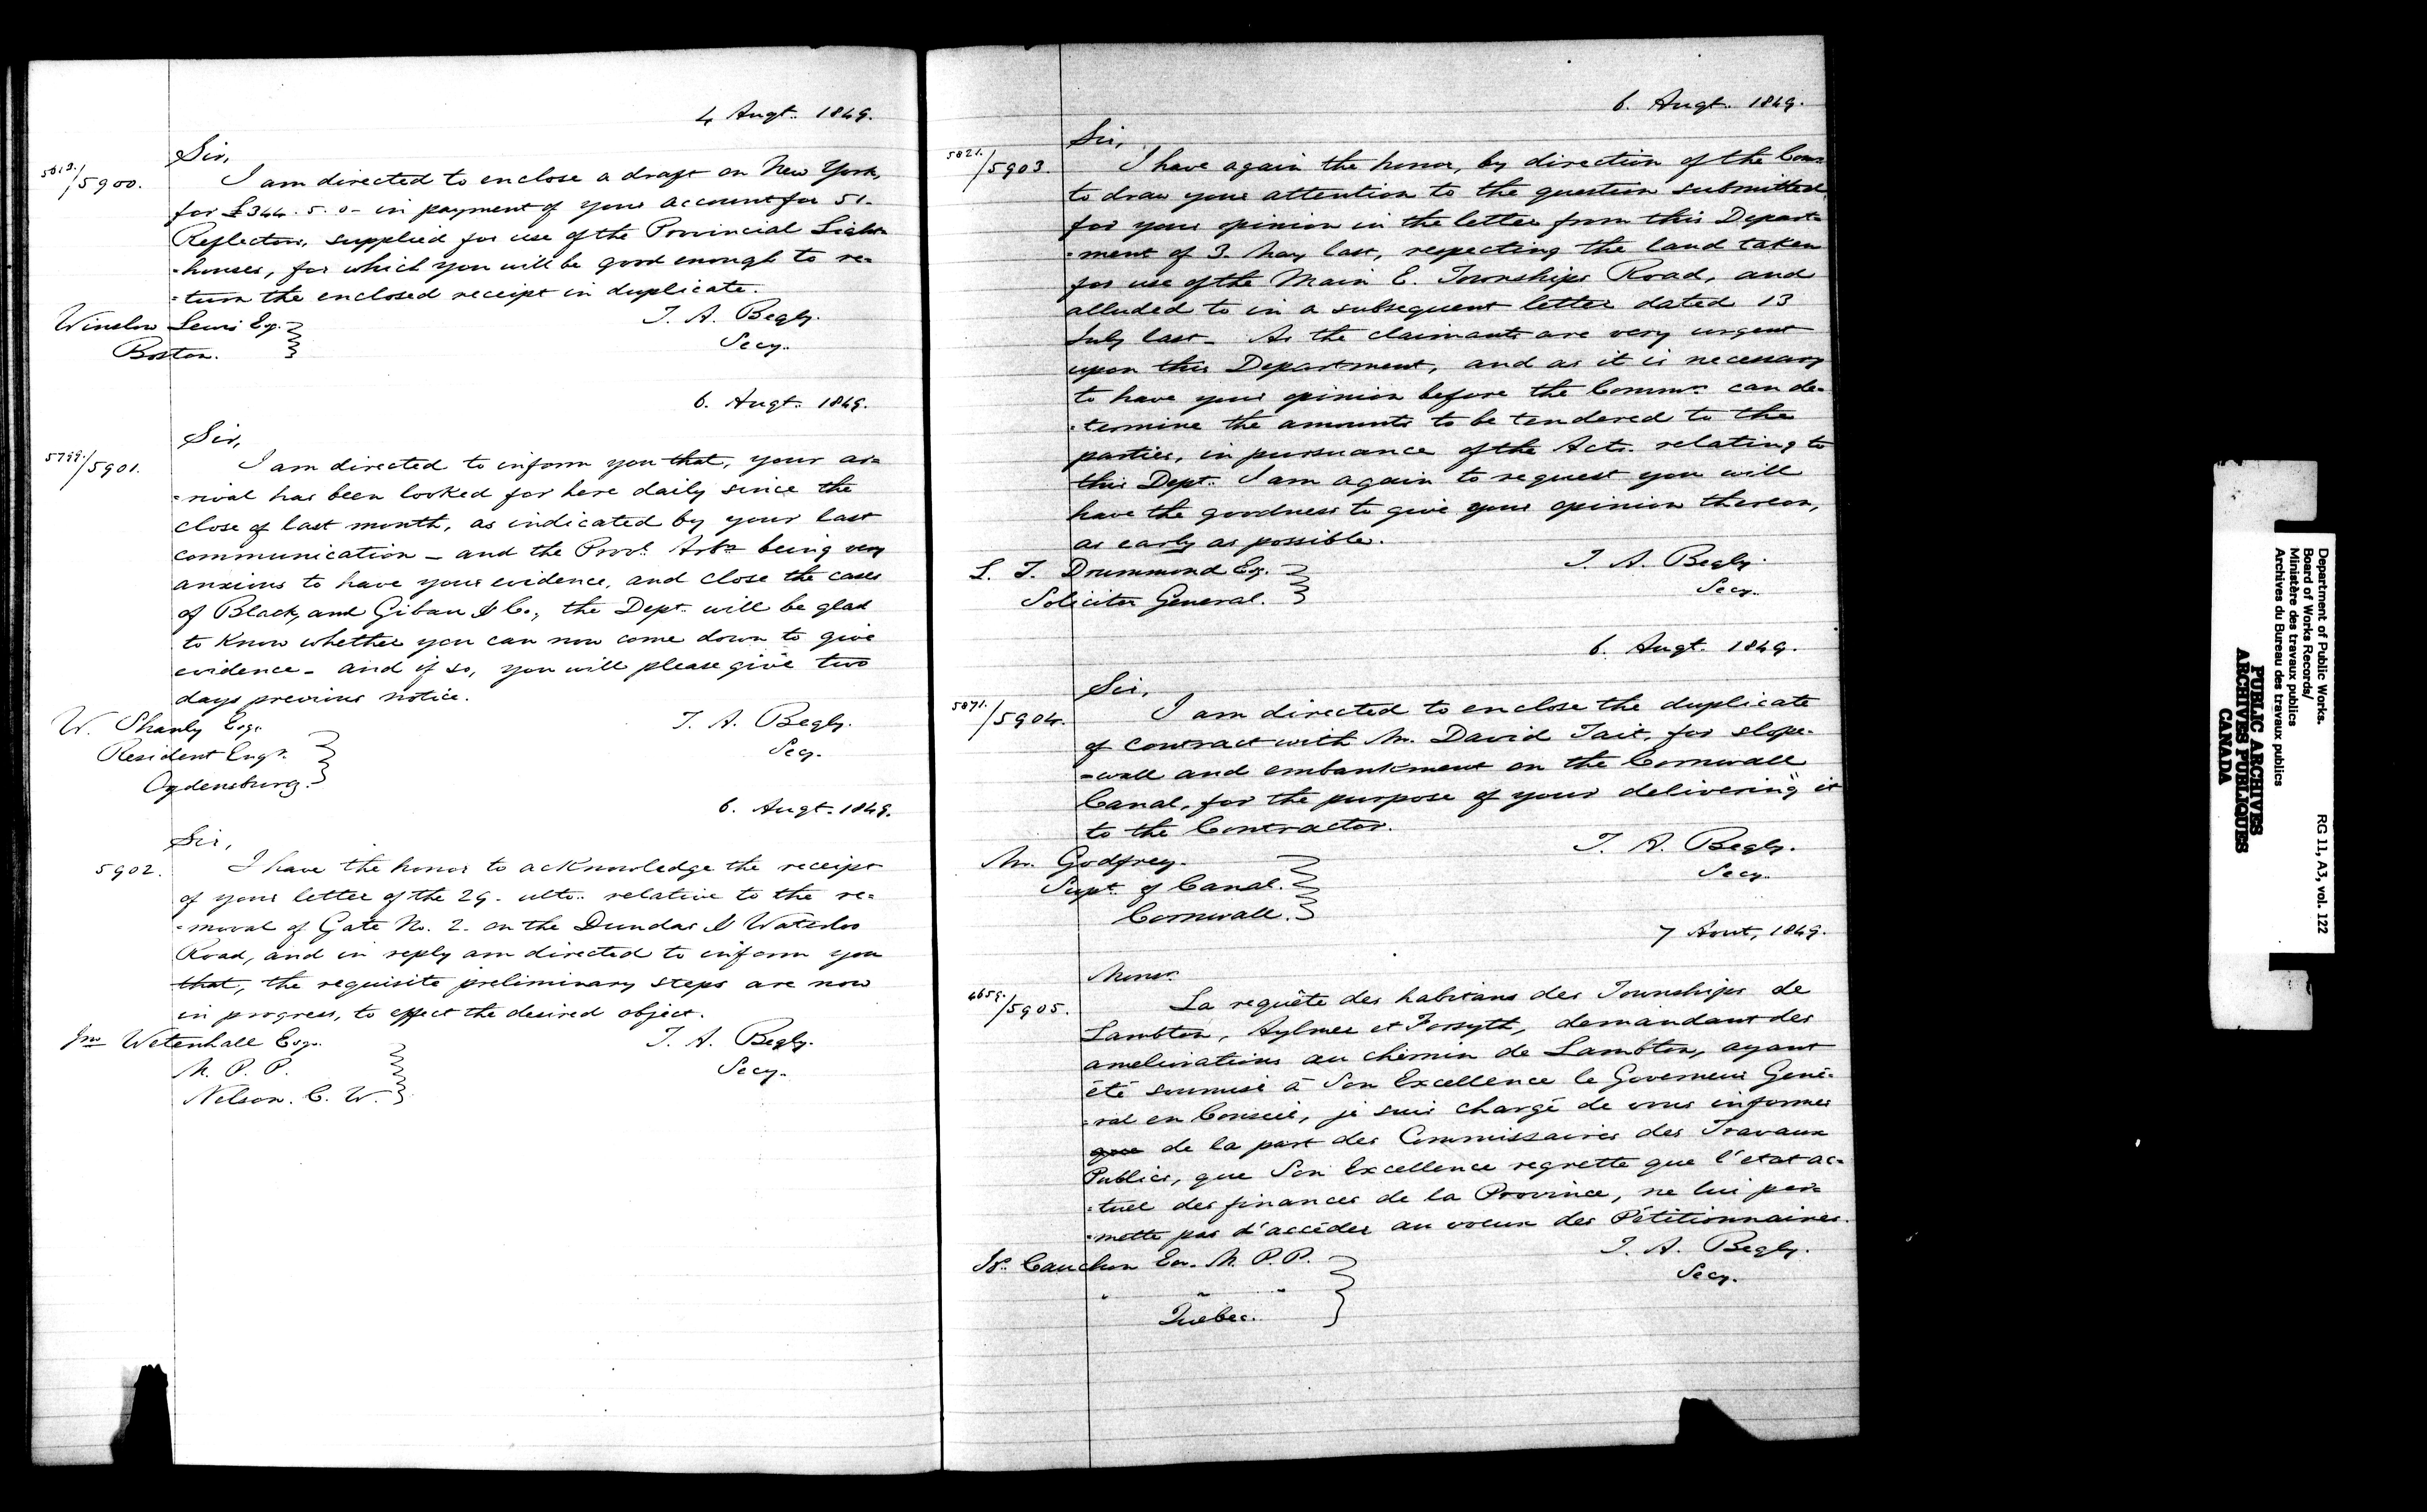 4 Augt. 1849.
Sir,
5813./5900. I am directed to enclose a draft on New York,
for £344. 5. 0- in payment of your account for 51.
Reflectors, supplied for use of the Provincial Light=
=houses, for which you will be good enough to re=
=turn the enclosed receipt in duplicate.
Winslow Lewis Esq.
Boston.
T. A. Begly.
Secy.
6. Augt. 1849.
Sir,
5799./5901. I am directed to inform you that, your ar=
=rival has been looked for here daily since the
close of last month, as indicated by your last
communication - and the Provl. Arbrs being very
anxious to have your evidence, and close the cases
of Black, and Gibau & Co., the Dept. will be glad
to know whether you can now come down to give
evidence - and if so, you will please give two
days previous notice.
W. Shanly Esq.
Resident Engr.
Ogdensburg.
T. A. Begly.
Secy.
6. Augt. 1849.
Sir,
5902. I have the honor to acknowledge the receipt
of your letter of the 29. ulto. relative to the re=
=moval of Gate No. 2. on the Dundas & Waterloo
Road, and in reply am directed to inform you
that, the requisite preliminary steps are now
in progress, to effect the desired object.
Jno Wetenhall Esq.
M. P. P.
Nelson. C. W.
T. A. Begly.
Secy.
6. Augt. 1849.
Sir,
5821./5903. I have again the honor, by direction of the Coms
to draw your attention to the question submitted
for your opinion in the letter from this Depart=
=ment of 3. May last, respecting the land taken
for use of the Main E. Townships Road, and
alluded to in a subsequent letter dated 13
July last - As the claimants are very urgent
upon this Department, and as it is necessary
to have your opinion before the Commrs. can de=
=termine the amounts to be tendered to the
parties, in pursuance of the Acts. relating to
this Dept. I am again to request you will
have the goodness to give your opinion thereon,
as early as possible.
L. T. Drummond Esq.
Solicitor General.
T. A. Begly.
Secy.
6. Augt. 1849.
Sir,
5871./5904. I am directed to enclose the duplicate
of contract with Mr. David Tait, for slope=
=wall and embankment on the Cornwall
Canal, for the purpose of your delivering it
to the Contractor.
Mr. Godfrey.
Supt. of Canal.
Cornwall.
T. A. Begly.
Secy.
7 Aout, 1849.
Monsr.
4659./5905. La requête des habitans des Townships de
Lambton, Aylmer et Forsyth, demandant des
ameliorations au chemin de Lambton, ayant
été soumise à Son Excellence le Governeur Gené=
=ral en Conseil, je suis chargé de vous informer
que de la part des Commissaires des Travaux
Publics, que Son Excellence regrette que l'etat ac=
=tuel des finances de la Province, ne lui per=
=mette pas d'accéder au voeux des Pétitionnaires.
Js. Cauchon Ecr. M. P. P.
" " "
Québec.
T. A. Begly.
Secy.
Department of Public Works. RG 11, A3, vol. 122
Board of Works Records/
Ministère des travaux publics
Archives du Bureau des travaux publics
PUBLIC ARCHIVES
ARCHIVES PUBLIQUES
CANADA